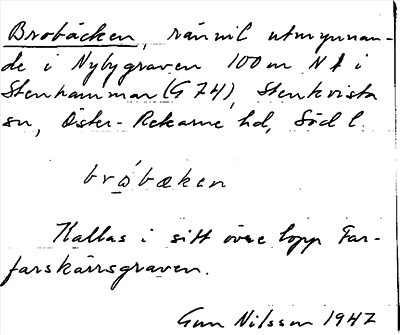 Brobäcken, rännil utmynnan-
de i Nybygraven 100 m N f i
Stenhammar (G 74), Stenkvista
sn, Öster-Rekarne hd, Söd l.
bro̱bæken
Kallas i sitt övre lopp Far-
farskärrsgraven.
Gun Nilsson 1947